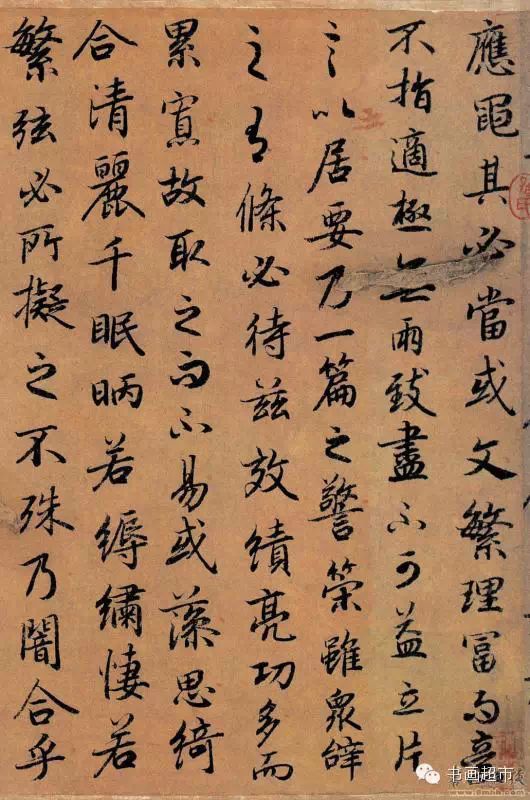 應繩其必當或文繁理富而意
不指適極無兩致盡不可益立片
言以居要乃一篇之警策雖衆辭
之有條必待茲效績亮功多而
累寡故取足而不易或藻思綺
合清麗千眠昞若縟繡悽若
繁弦必所擬之不殊乃闇合乎
书画超市